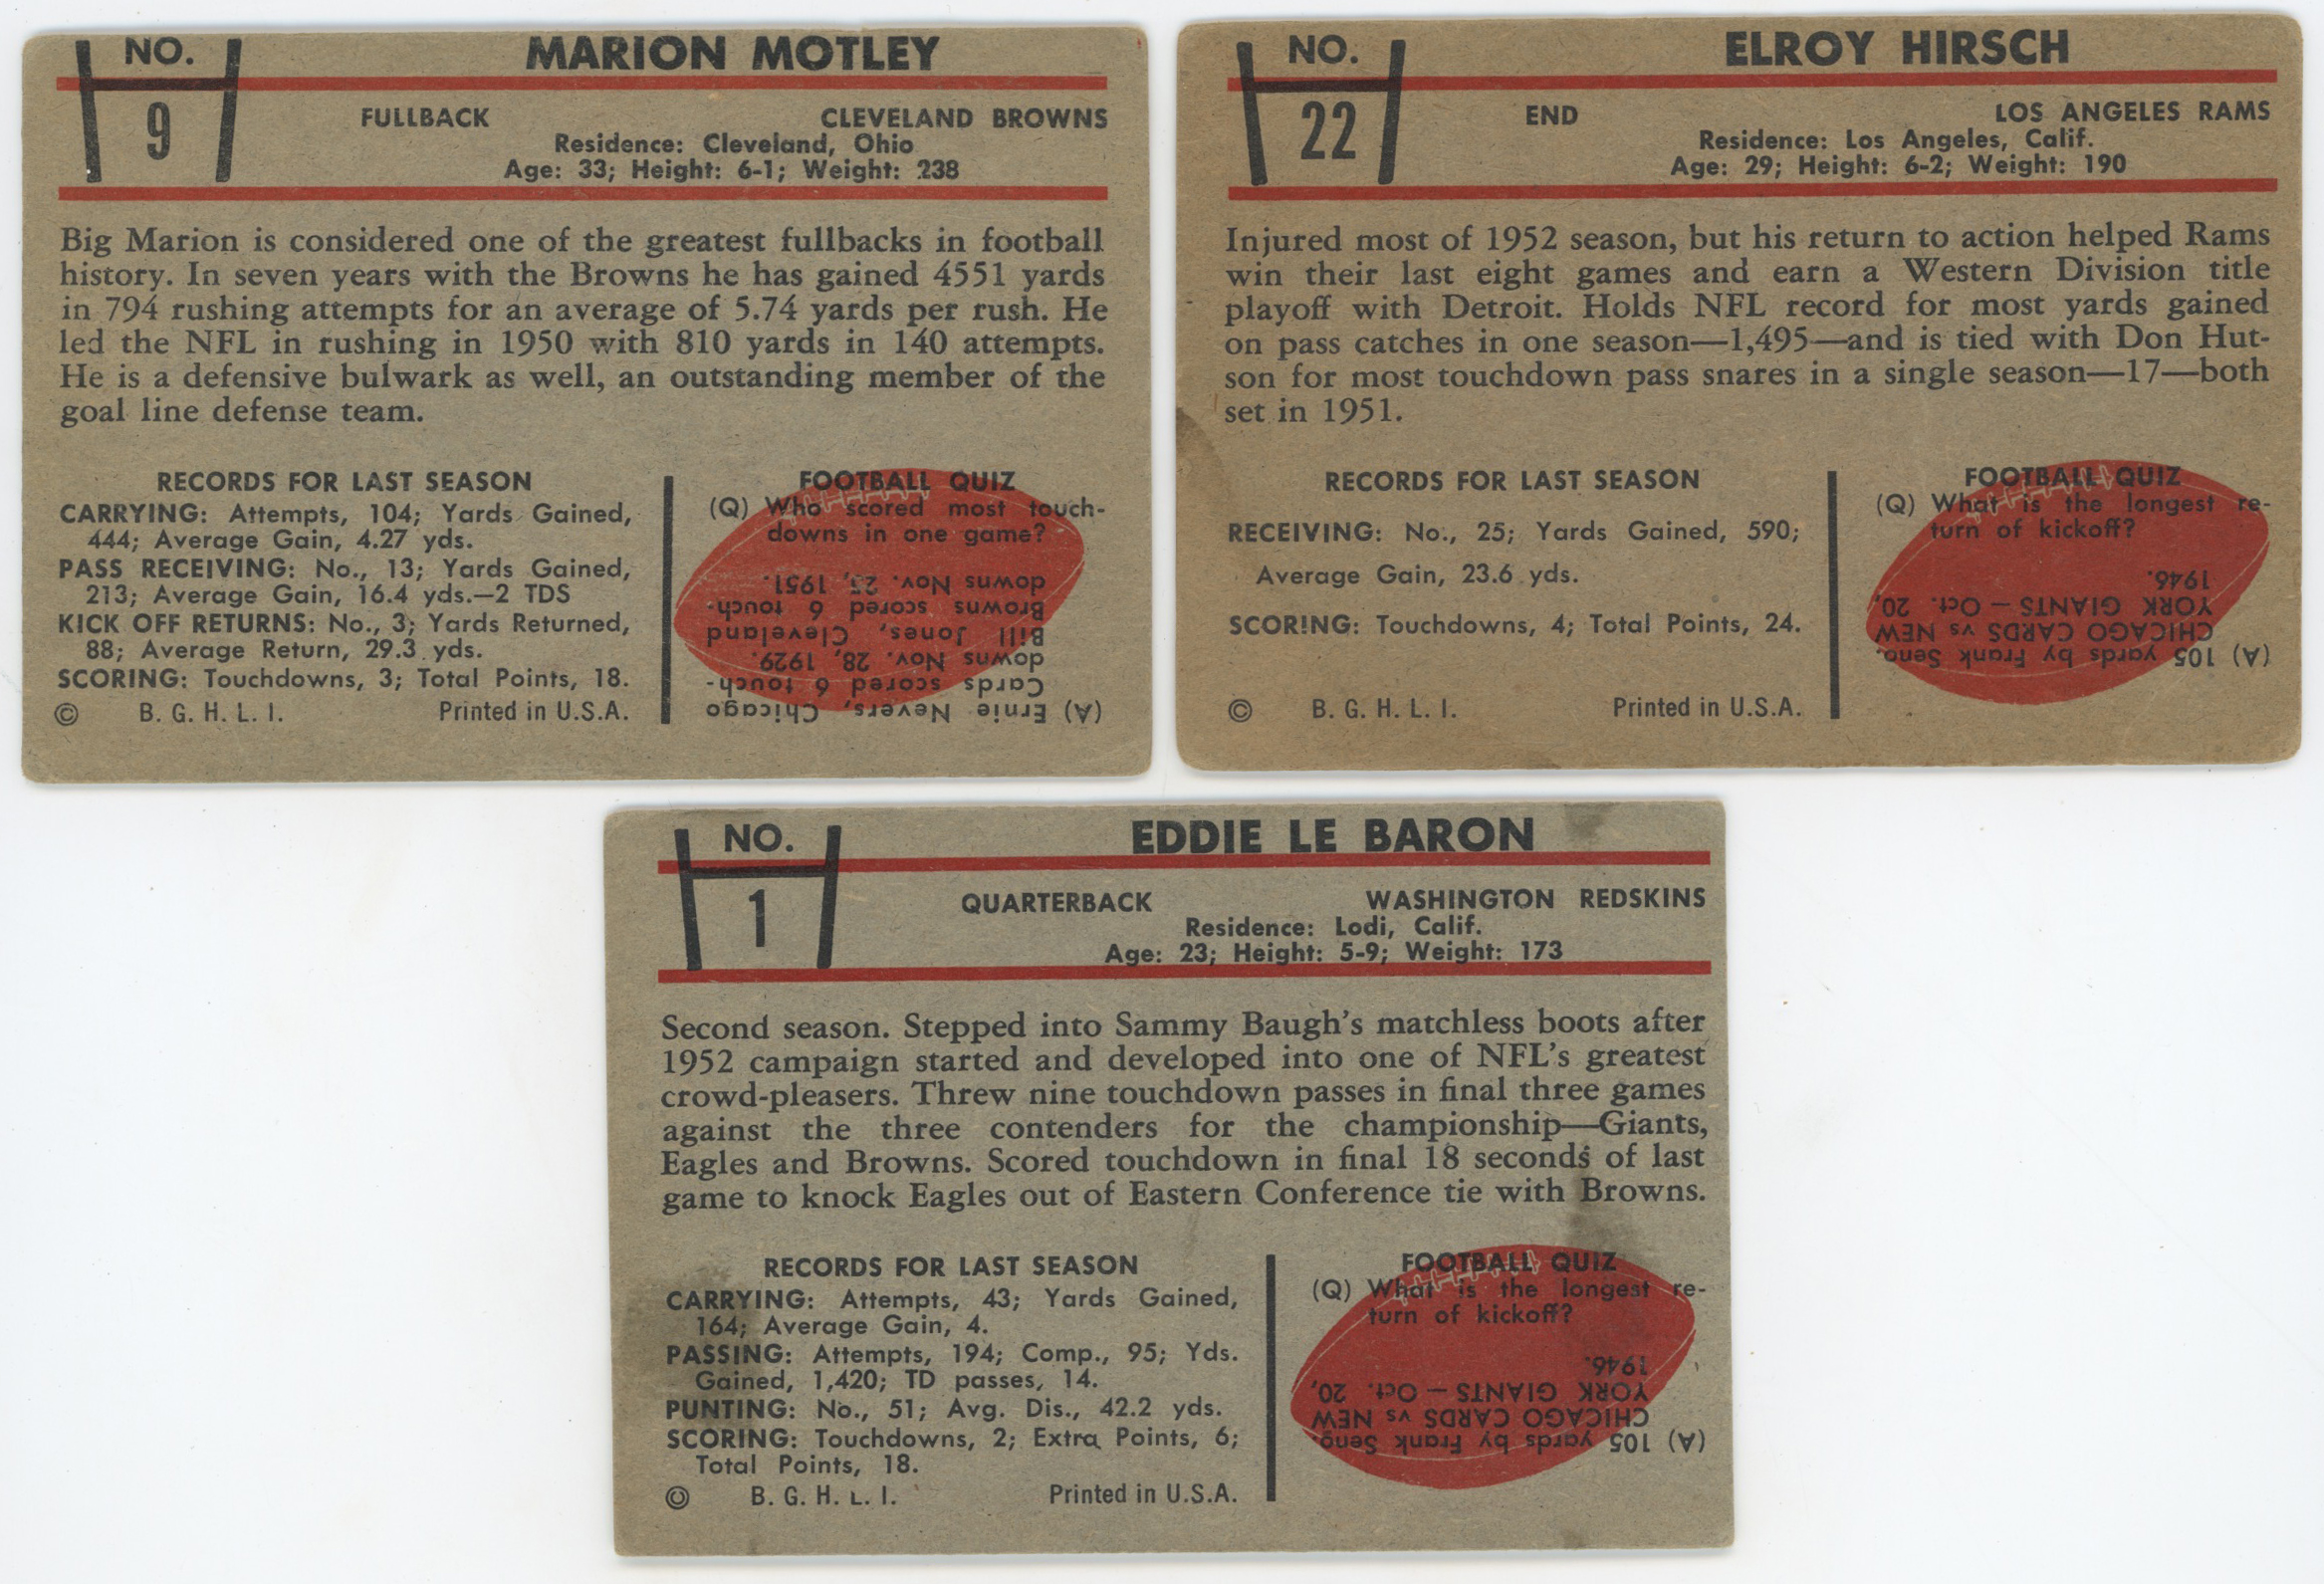 NO.
9
MARION MOTLEY
FULLBACK CLEVELAND BROWNS
Residence: Cleveland, Ohio
Age: 33; Height: 6-1; Weight: 238
Big Marion is considered one of the greatest fullbacks in football
history. In seven years with the Browns he has gained 4551 yards
in 794 rushing attempts for an average of 5.74 yards per rush. He
led the NFL in rushing in 1950 with 810 yards in 140 attempts.
He is a defensive bulwark as well, an outstanding member of the
goal line defense team.
RECORDS FOR LAST SEASON
CARRYING: Attempts, 104; Yards Gained,
444; Average Gain, 4.27 yds.
PASS RECEIVING: No., 13; Yards Gained,
213; Average Gain, 16.4 yds.—2 TDS
KICK OFF RETURNS: No., 3; Yards Returned,
88; Average Return, 29.3 yds.
SCORING: Touchdowns, 3; Total Points, 18.
© B. G. H. L. I. Printed in U.S.A.
FOOTBALL QUIZ
(Q) Who scored most touch-
downs in one game?
(A) Ernie Nevers, Chicago
Cards scored 6 touch-
downs Nov. 28, 1929.
Bill Jones, Cleveland
Browns scored 6 touch-
downs Nov. 25, 1951.
NO.
22
ELROY HIRSCH
END LOS ANGELES RAMS
Residence: Los Angeles, Calif.
Age: 29; Height: 6-2; Weight: 190
Injured most of 1952 season, but his return to action helped Rams
win their last eight games and earn a Western Division title
playoff with Detroit. Holds NFL record for most yards gained
on pass catches in one season—1,495—and is tied with Don Hut-
son for most touchdown pass snares in a single season—17—both
set in 1951.
RECORDS FOR LAST SEASON
RECEIVING: No., 25; Yards Gained, 590;
Average Gain, 23.6 yds.
SCORING: Touchdowns, 4; Total Points, 24.
© B. G. H. L. I. Printed in U.S.A.
FOOTBALL QUIZ
(Q) What is the longest re-
turn of kickoff?
(A) 105 yards by Frank Seno,
CHICAGO CARDS vs NEW
YORK GIANTS — Oct. 20,
1946.
NO.
1
EDDIE LE BARON
QUARTERBACK WASHINGTON REDSKINS
Residence: Lodi, Calif.
Age: 23; Height: 5-9; Weight: 173
Second season. Stepped into Sammy Baugh's matchless boots after
1952 campaign started and developed into one of NFL's greatest
crowd-pleasers. Threw nine touchdown passes in final three games
against the three contenders for the championship—Giants,
Eagles and Browns. Scored touchdown in final 18 seconds of last
game to knock Eagles out of Eastern Conference tie with Browns.
RECORDS FOR LAST SEASON
CARRYING: Attempts, 43; Yards Gained,
164; Average Gain, 4.
PASSING: Attempts, 194; Comp., 95; Yds.
Gained, 1,420; TD passes, 14.
PUNTING: No., 51; Avg. Dis., 42.2 yds.
SCORING: Touchdowns, 2; Extra Points, 6;
Total Points, 18.
© B. G. H. L. I. Printed in U.S.A.
FOOTBALL QUIZ
(Q) What is the longest re-
turn of kickoff?
(A) 105 yards by Frank Seno,
CHICAGO CARDS vs NEW
YORK GIANTS — Oct. 20,
1946.